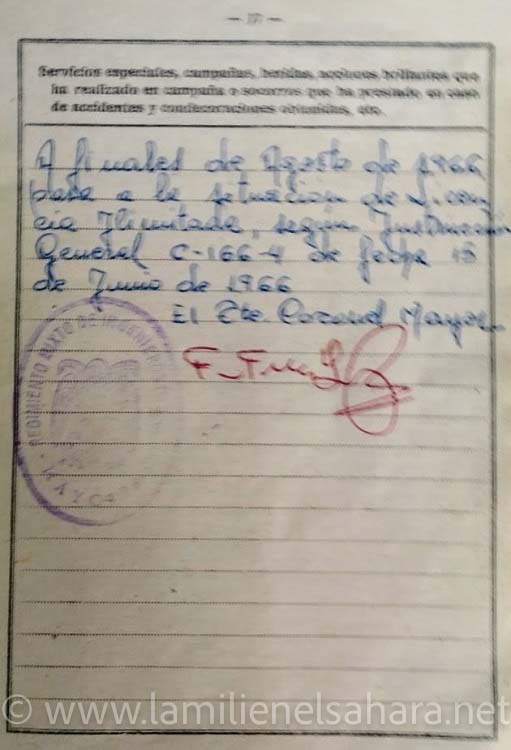 Servicios especiales, campañas, heridas, acciones brillantes que
ha realizado en campaña o socorros que ha prestado en caso
de accidentes y condecoraciones obtenidas, etc.
A finales de Agosto de 1966
pasa a la situacion de Licen
cia Ilimitada, según Instruccion
General C-166-4 de fecha 15
de Junio de 1966
El Tte. Coronel Mayor
REGIMIENTO MIXTO DE INGENIEROS
MAYOR
© www.lamilienelsahara.net